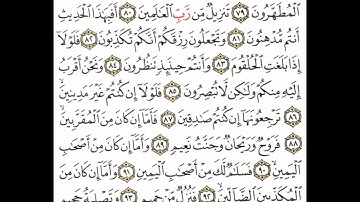 ٱلۡمُطَهَّرُونَ ٧٩ تَنزِيلٞ مِّن رَّبِّ ٱلۡعَٰلَمِينَ ٨٠ أَفَبِهَٰذَا ٱلۡحَدِيثِ
أَنتُم مُّدۡهِنُونَ ٨١ وَتَجۡعَلُونَ رِزۡقَكُمۡ أَنَّكُمۡ تُكَذِّبُونَ ٨٢ فَلَوۡلَآ
إِذَا بَلَغَتِ ٱلۡحُلۡقُومَ ٨٣ وَأَنتُمۡ حِينَئِذٖ تَنظُرُونَ ٨٤ وَنَحۡنُ أَقۡرَبُ
إِلَيۡهِ مِنكُمۡ وَلَٰكِن لَّا تُبۡصِرُونَ ٨٥ فَلَوۡلَآ إِن كُنتُمۡ غَيۡرَ مَدِينِينَ ٨٦
تَرۡجِعُونَهَآ إِن كُنتُمۡ صَٰدِقِينَ ٨٧ فَأَمَّآ إِن كَانَ مِنَ ٱلۡمُقَرَّبِينَ
٨٨ فَرَوۡحٞ وَرَيۡحَانٞ وَجَنَّتُ نَعِيمٖ ٨٩ وَأَمَّآ إِن كَانَ مِنۡ أَصۡحَٰبِ
ٱلۡيَمِينِ ٩٠ فَسَلَٰمٞ لَّكَ مِنۡ أَصۡحَٰبِ ٱلۡيَمِينِ ٩١ وَأَمَّآ إِن كَانَ مِنَ
ٱلۡمُكَذِّبِينَ ٱلضَّآلِّينَ ٩٢ فَنُزُلٞ مِّنۡ حَمِيمٖ ٩٣ وَتَصۡلِيَةُ جَحِيمٍ